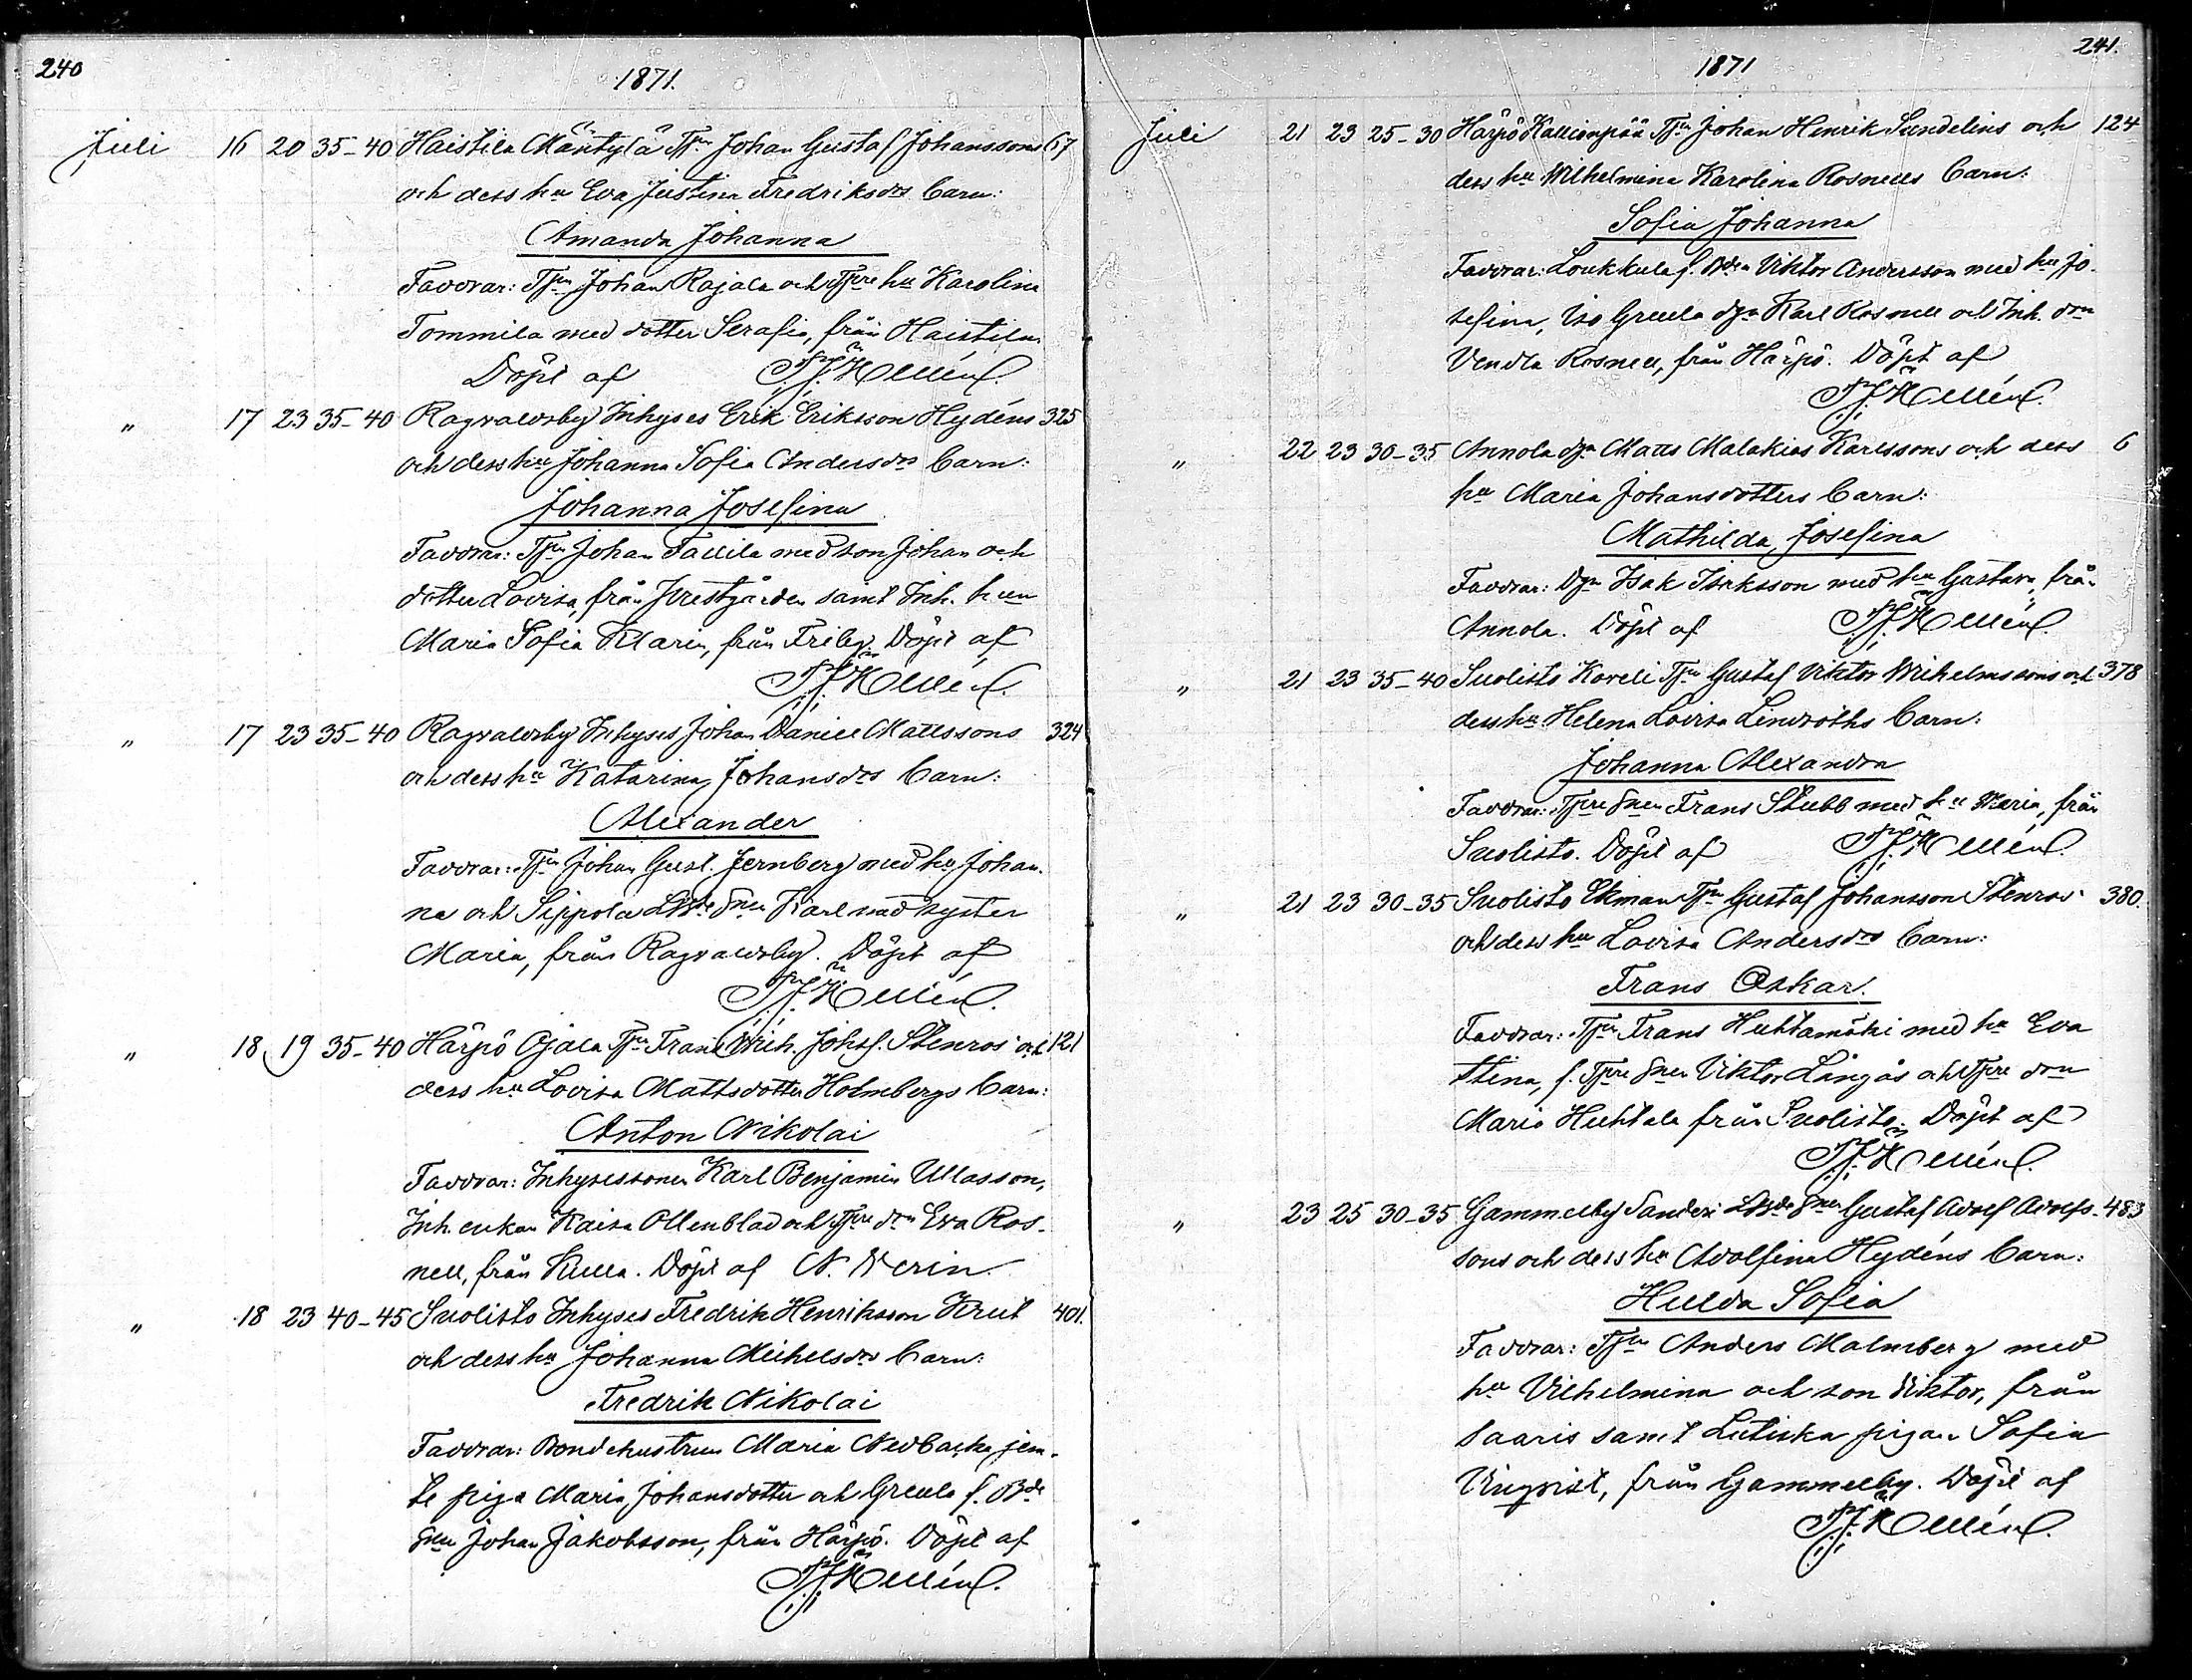 240
1871.
Juli 16 20 35-40 Haistila Mäntylä Tpn Johan Gustaf Johanssons 67
och dess hu Eva Justina Fredriksdrs barn:
Amanda Johanna
Faddrar: Tpn Johan Rajala och Tpre hu Karolina
Tommila med dotter Serafia, från Haistila
Döpt af
" 17 23 35-40 Ragvaldsby Inhyses Erik Eriksson Hydéns 325
och dess hu Johanna Sofia Andersdrs barn:
Johanna Josefina
Faddrar: Tpn Johan Tallila med son Johan och
dotter Lovisa, från Prestgården samt Inh. hun
Maria Sofia Klarin, från Friby. Döpt af
" 17 23 35-40 Ragvaldsby Inhyses Johan Daniel Mattssons 324
och dess hu Katarina Johansdrs barn:
Alexander
Faddrar: Tpn Johan Gust. Jernberg med hu Johan-
na och Sippola Karl med syster
Maria, från Ragvaldsby. Döpt af
" 18 19 35-40 Härpö Ojala Tpn Frans Wilh. Johsf. Stenros' och 121
dess hu Lovisa Mattsdotter Holmbergs barn:
Anton Nikolai
Faddrar: Inhysessonen Karl Benjamin Ullasson,
Inh. enkan Kaisa Ollenblad och Tpre drn Eva Ros-
nell, från Kulla. Döpt af N.
" 18 23 40-45 Suolisto Inhyses Fredrik Henriksson Krut 401.
och dess hu Johanna Mickelsdrs barn:
Fredrik Nikolai
Faddrar: Bondehustrun Maria Nedbacka jem-
te piga Maria Johansdotter och Greula f. Bde
Snen Johan Jakobsson, från Härpö. Döpt af
241.
1871
Juli 21 23 25-30 Härpö Kallionpää Tpn Johan Henrik Sundelins och 124
dess hu Wilhelmina Karolina Rosnells barn:
Sofia Johanna
Faddrar: Loukkula f. Viktor Andersson med hu Jo-
sefina, Iso Greula Karl Rosnell och Inh. drn
Vendla Rosnell, från Härpö. Döpt af
" 22 23 30-35 Annola Matts Malakias Karlssons och dess 6
hu Maria Johansdotters barn:
Mathilda Josefina
Faddrar: Isak Isaksson med hu Gustava, från
Annola. Döpt af
" 21 23 35-40 Suolisto Koreli Tpn Gustaf Viktor Wilhelmssons och 378
dess hu Helena Lovisa Lindroths barn:
Johanna Alexandra
Faddrar: Tpre Snen Frans Stubb med hu Maria, från
Suolisto. Döpt af
" 21 23 30-35 Suolisto Ekman Tpn Gustaf Johansson Stenros' 380.
och dess hu Lovisa Andersdrs barn:
Frans Oskar.
Faddrar: Tpn Frans Huhtamäki med hu Eva
Stina, f. Tpre Snen Viktor Långås och Tpre drn
Maria Huhtala från Suolisto. Döpt af
" 23 25 30-35 Gammelby Sanderi Snen Gustaf Adolf Adolfs- 483
sons och dess hu Adolfina Hydéns barn:
Hulda Sofia
Faddrar: Tpn Anders Malmberg med
hu Vilhelmina och son Viktor, från
Saaris samt Lutiska pigan Sofia
Vinqvist, från Gammelby. Döpt af